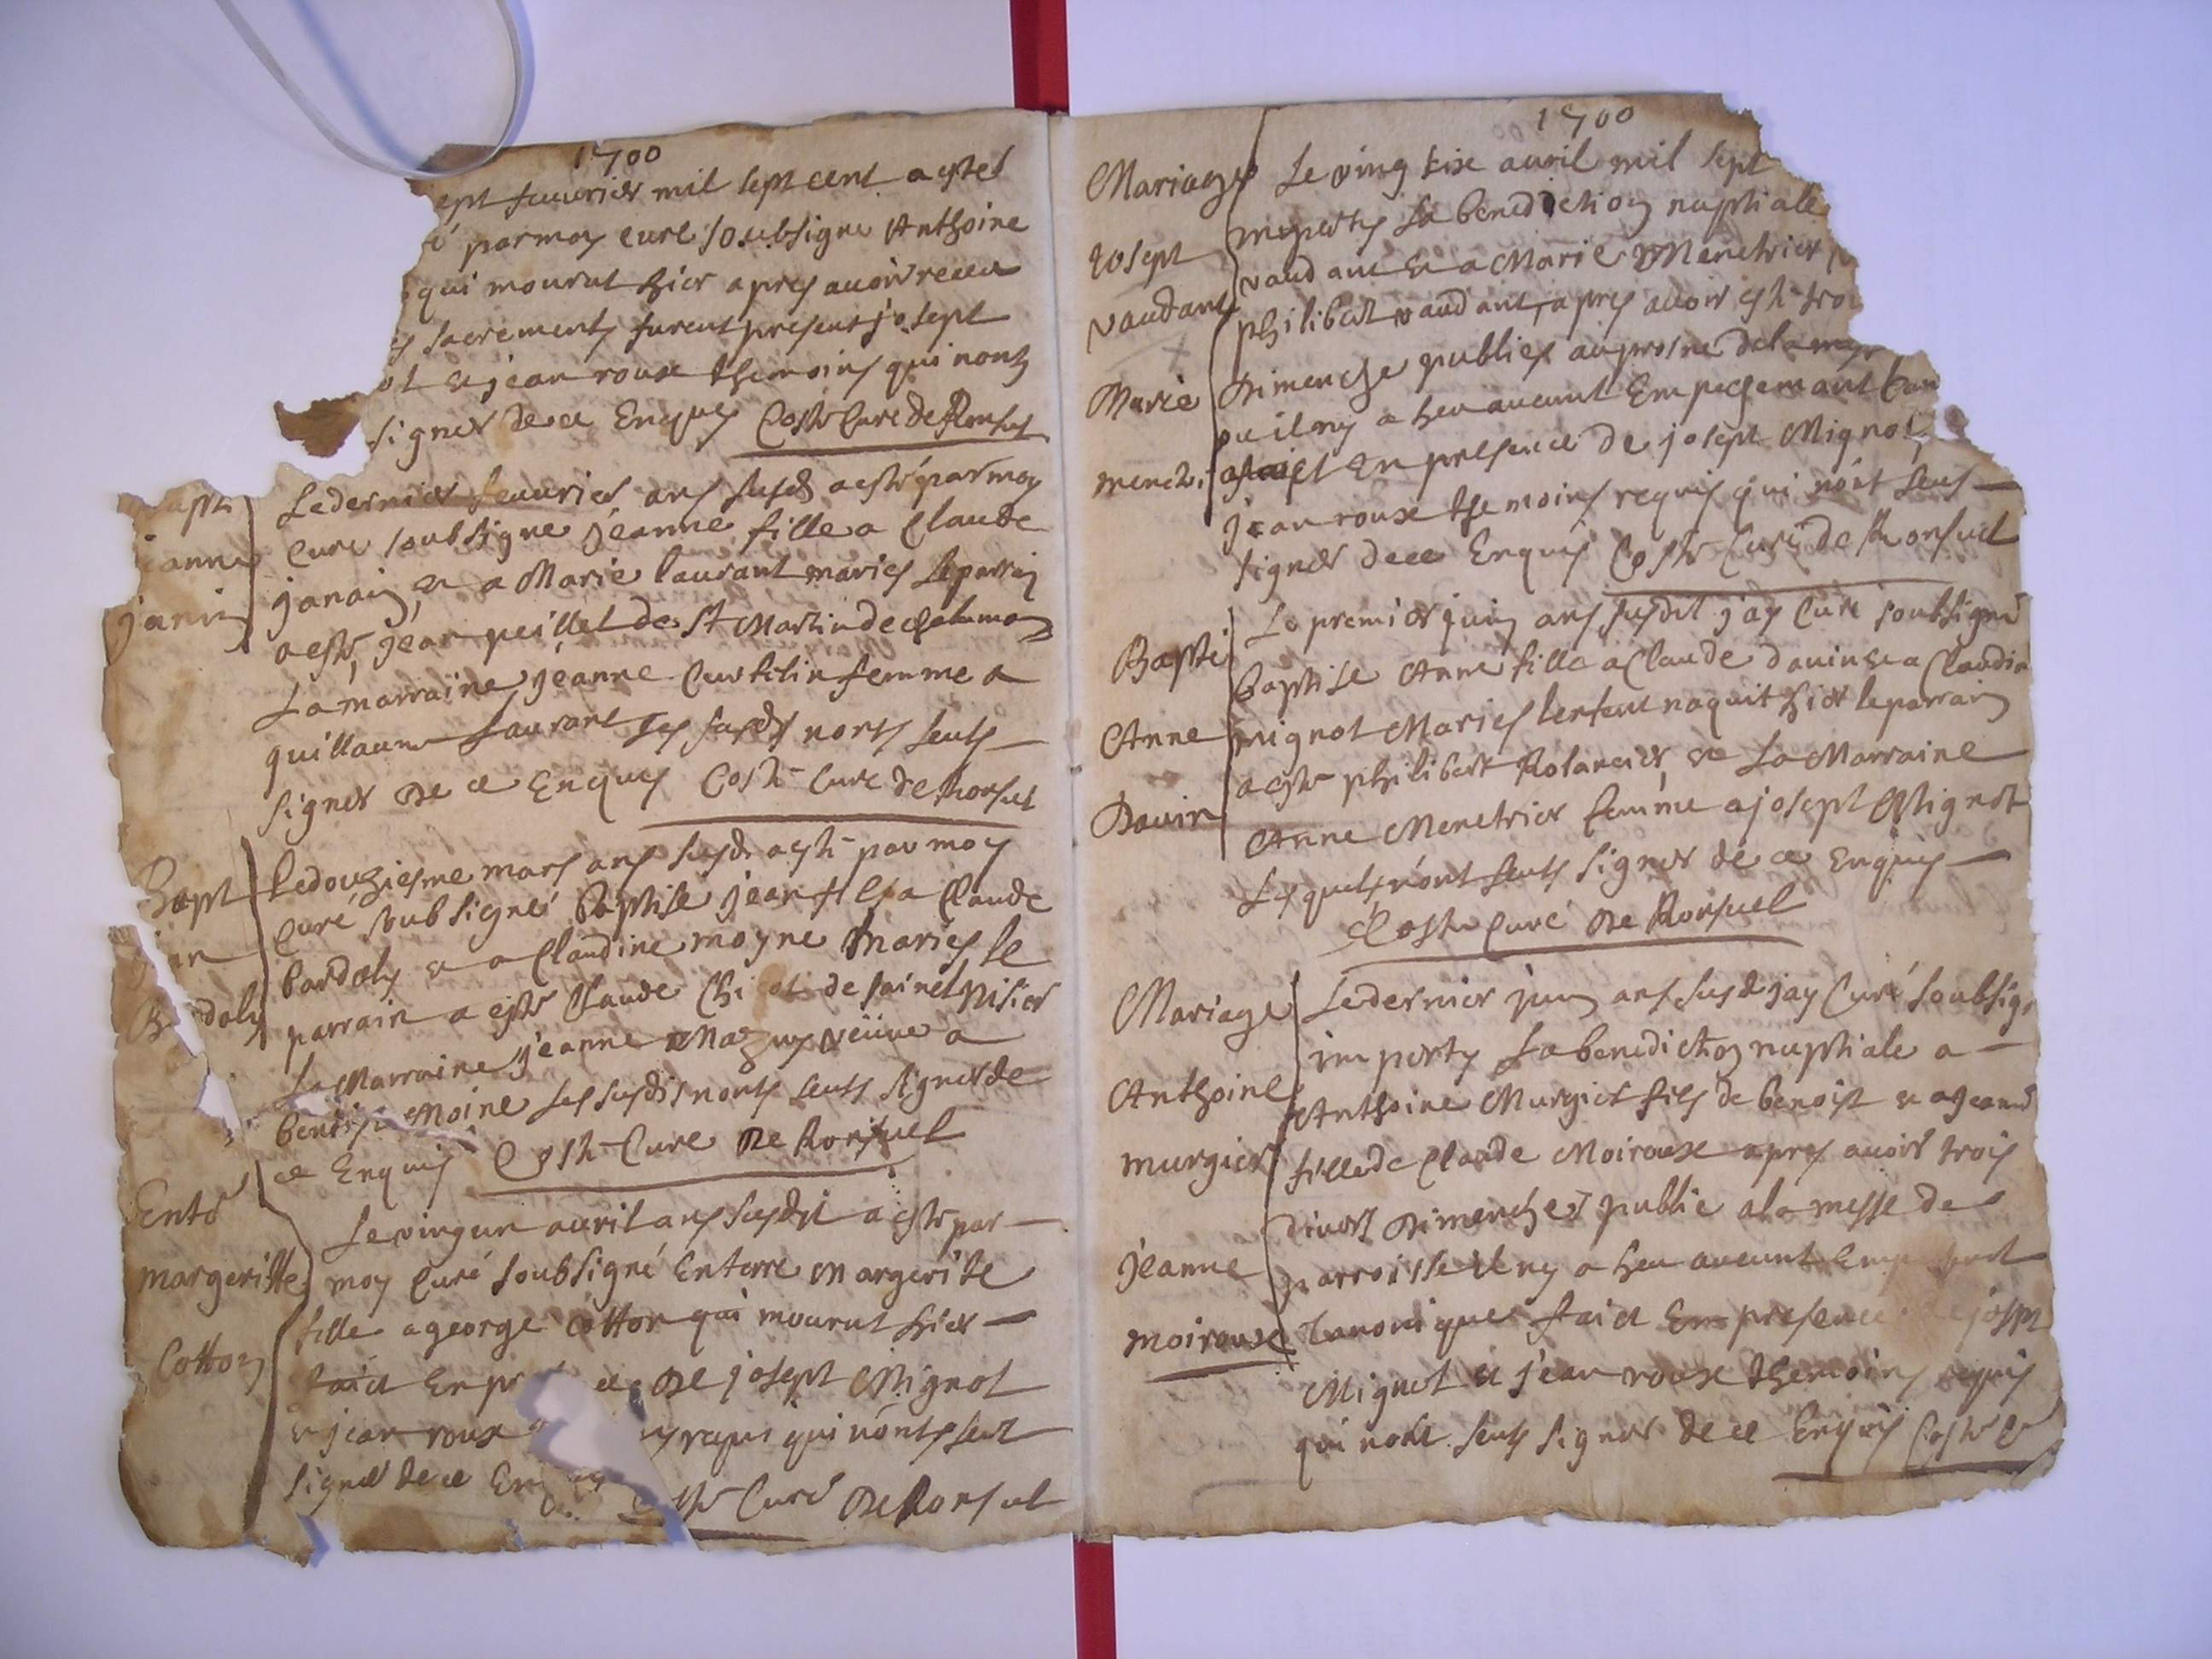 1700
ept feuvrier mil sept cent a estes
é par moy curé soubsigné Anthoine
qui mourut hier apres avoir receu
sacrements furent present josept
ot et jean roux themoins qui nonts
signer de ce Enquis Coste Curé de Ronsuel
Bapti
jeanne
janin
Le dernier feuvrier ans susdt a esté par moy
Curé soubsigné jeanne fille a Claude
janain et a Marie laurant mariés le parrain
a esté jean peillet de St Martin de chalamon
La marraine jeanne Curtilin femme a
guillaume Laurant les susdts nonts seuts
signer de ce Enquis Coste Curé de Ronsuel
Bapt
jean
Bardoly
Le douziesme mars ans susdt a esté par moy
Curé soubsigné baptise jean fils a Claude
bardoly et a Claudine moyne mariés le
parrain a esté Claude de sainct Nisier
La Marraine jeanne Mazuy veüve a
benoist Moine les susdits nonts seuts signer de
ce Enquis Coste Curé De Ronsuel
Enter
margeritte
Cotton
Le vingun avril ans susdit a esté par
moy Curé soubsigné Enterré Margerite
fille a george Cotton qui mourut hier
faict En pr ce De josept Mignot
et jean roux requis qui nonts seut
signer de ce Enquis Coste Curé De Ronsuel
1700
Mariage
Josept
vaudant
Marie
menetri
Le ving sixe avril mil sept
imperty La benediction nuptiale
vaudant et a Marie Menetrier
philibert vaudant, apres avoir esté troi
Dimenche publies au prosne de la mes
ou il ny a heu aucunt Empechemant Can
faict En presence de josept Mignot
jean roux themoins requis qui nont seus
signer de ce Enquis Coste Curé de Ronsuel
Bapti
Anne
Davin
Le premier juin ans susdit j'ay Curé soubsigné
baptisé Anne fille a Claude davin et a Claudia
mignot Mariés lenfant naquit hier le parrain
a esté philibert Rolancier, et La Marraine
Anne Menetrier femme a josept Mignot
Lesquels n'ont seuts signer de ce Enquis
Coste Curé De Ronsuel
Mariage
Anthoine
murgier
jeanne
moiroux
Le dernier juin ans susdt jay Curé soubsig
imperty La benediction nuptiale a
Anthoine Murgier fils de benoist et a jeanne
fille de Claude Moiroux apres avoir trois
divers Dimenches publié a la messe de
parroisse il ny a heu aucunt Emp
Canonique faict En presence de josept
Mignot et jean roux themoins requis
qui nont seuts signer de ce Enquis Coste C